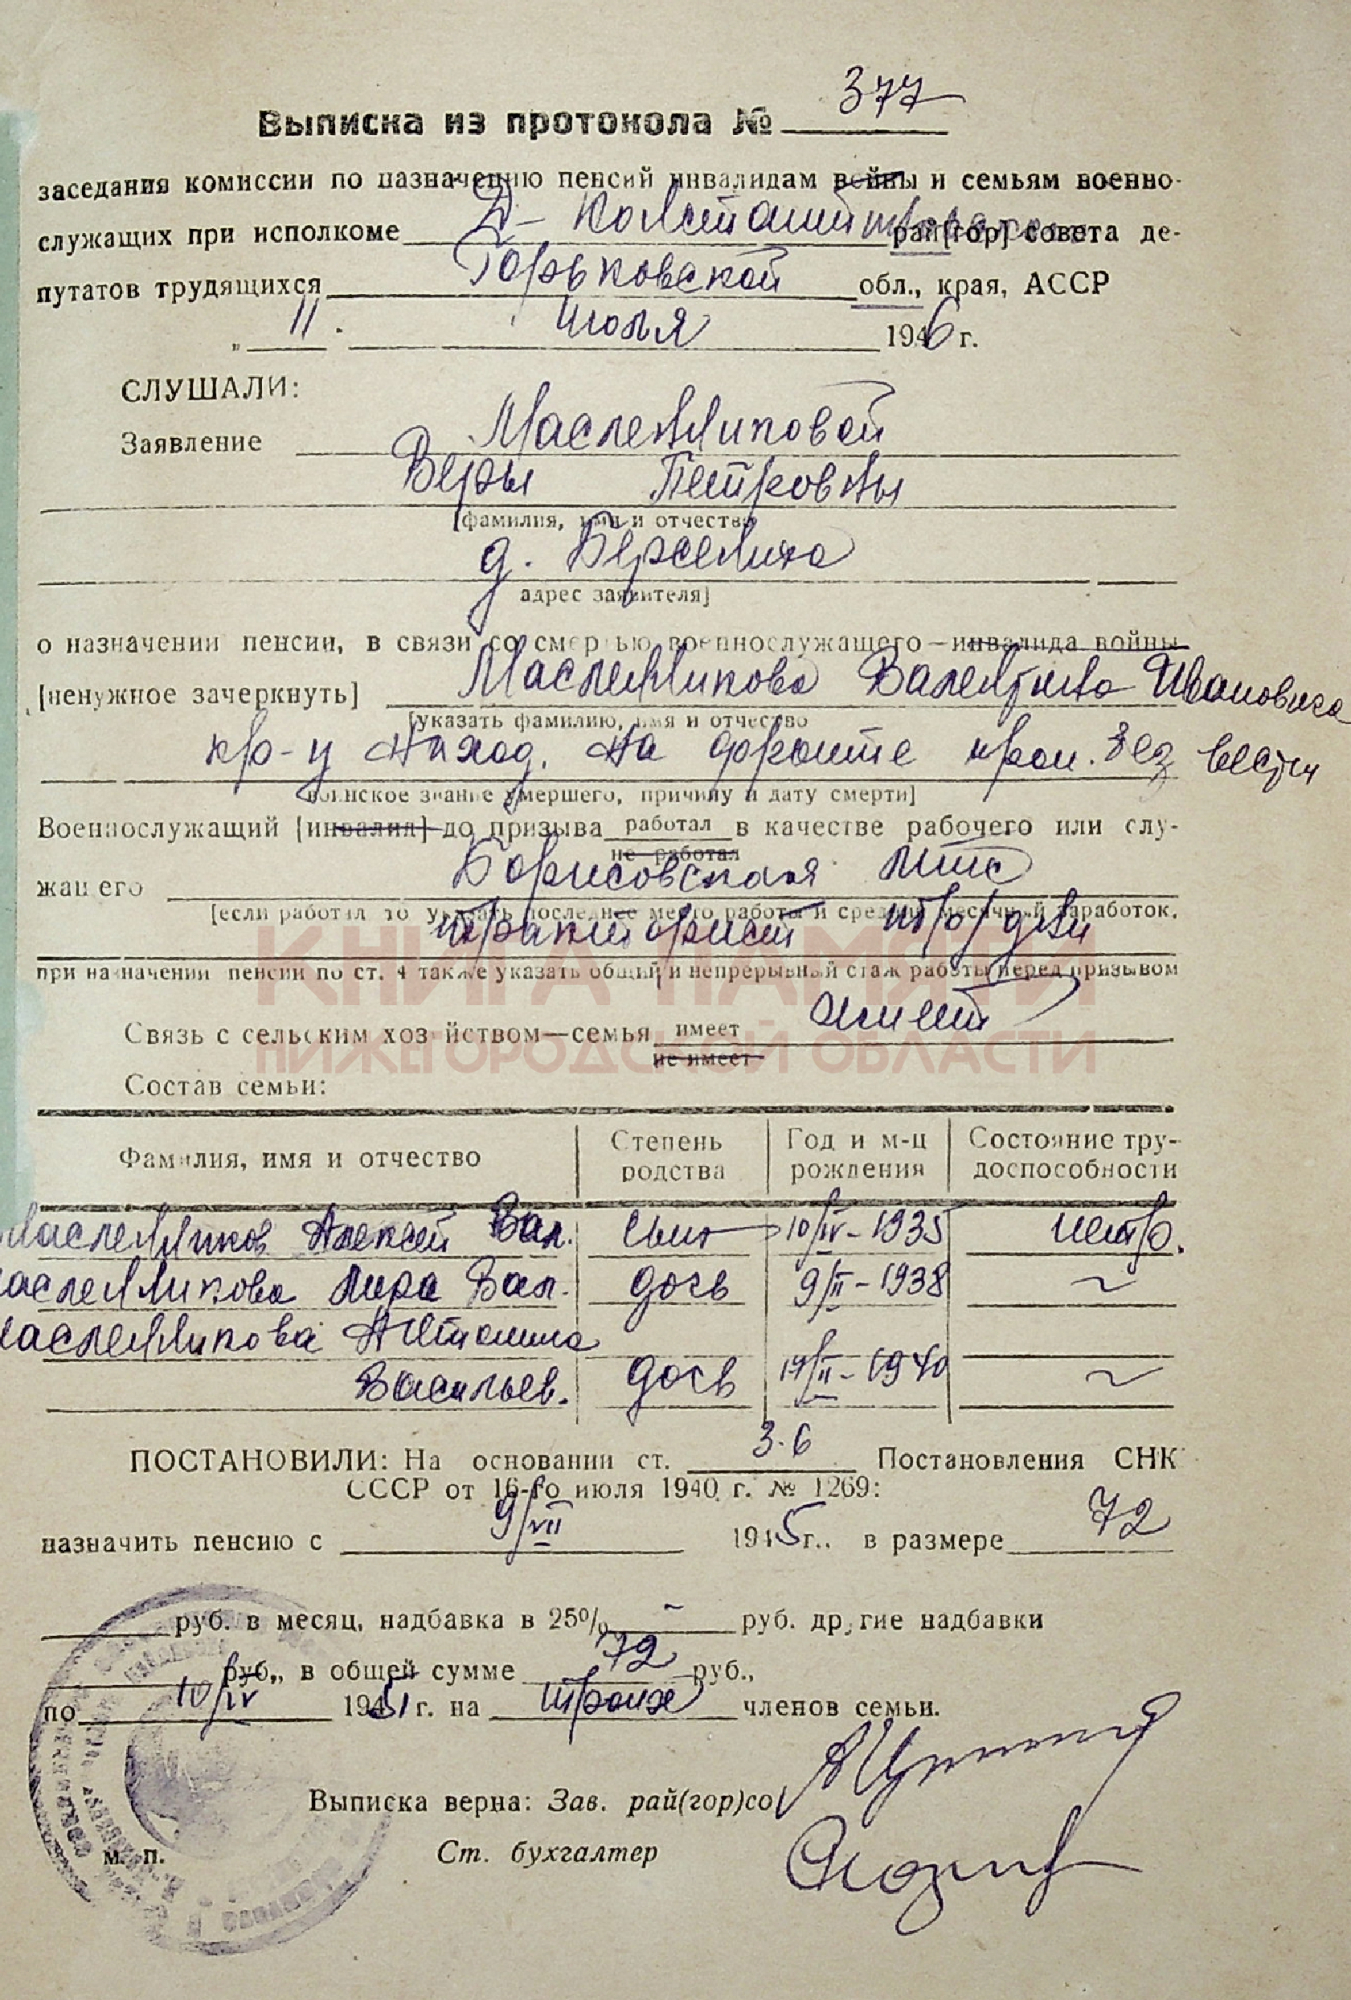 Выписка из протокола № 377
заседания комиссии по назначению пенсий инвалидам войны и семьям военно-
служащих при исполкоме Д-Константиновского рай[гор] совета де-
путатов трудящихся Горьковской обл., края, АССР
„ 11. июля 1946 г.
СЛУШАЛИ:
Заявление Масленниковой
Веры Петровны
[фамилия, имя и отчество
д. Берселиха
адрес заявителя]
о назначении пенсии, в связи со смертью военнослужащего—инвалида войны
[ненужное зачеркнуть] Масленникова Валентина Ивановича
[указать фамилию, имя и отчество
кр-ц наход. на фронте проп. без вести
воинское звание умершего, причину и дату смерти]
Военнослужащий [инвалид] до призыва работал в качестве рабочего или слу-
не работал
жащего Борисовская мтс
[если работал то указать последнее место работы и средний месячный заработок,
тракторист тр/дни
при назначении пенсии по ст. 4 также указать общий и непрерывный стаж работы перед призывом
Связь с сельским хозяйством—семья имеет имеет
не имеет
КНИГА ПАМЯТИ
НИЖЕГОРОДСКОЙ ОБЛАСТИ
Состав семьи:
Фамилия, имя и отчество Степень родства Год и м-ц рождения Состояние тру-доспособности
Масленников Алексей Вал. сын 10/IV-1935 нетр.
Масленникова Лира Вал. дочь 9/II-1938 ~
Масленникова Антонина
Васильев. дочь 19/II-1940 ~
ПОСТАНОВИЛИ: На основании ст. 3.6 Постановления СНК
СССР от 16-го июля 1940 г. № 1269:
назначить пенсию с 9/VII 1945 г.. в размере 72
руб. в месяц, надбавка в 25% - руб. другие надбавки
руб., в общей сумме 72 руб.,
по 10/IV 1951 г. на троих членов семьи.
Выписка верна: Зав. рай(гор)со
м. п. Ст. бухгалтер